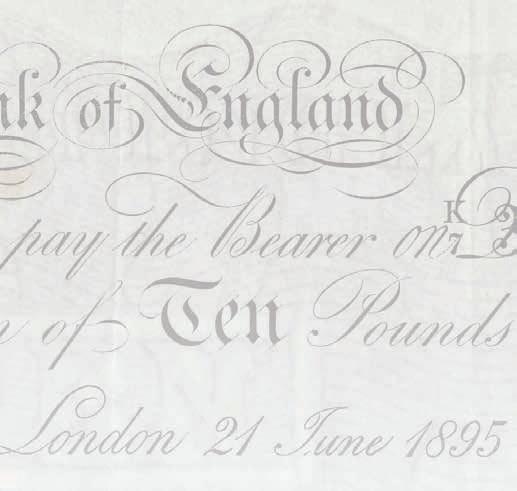 nk of England
pay the Bearer on K/7
of Ten Pounds
London 21 June 1895